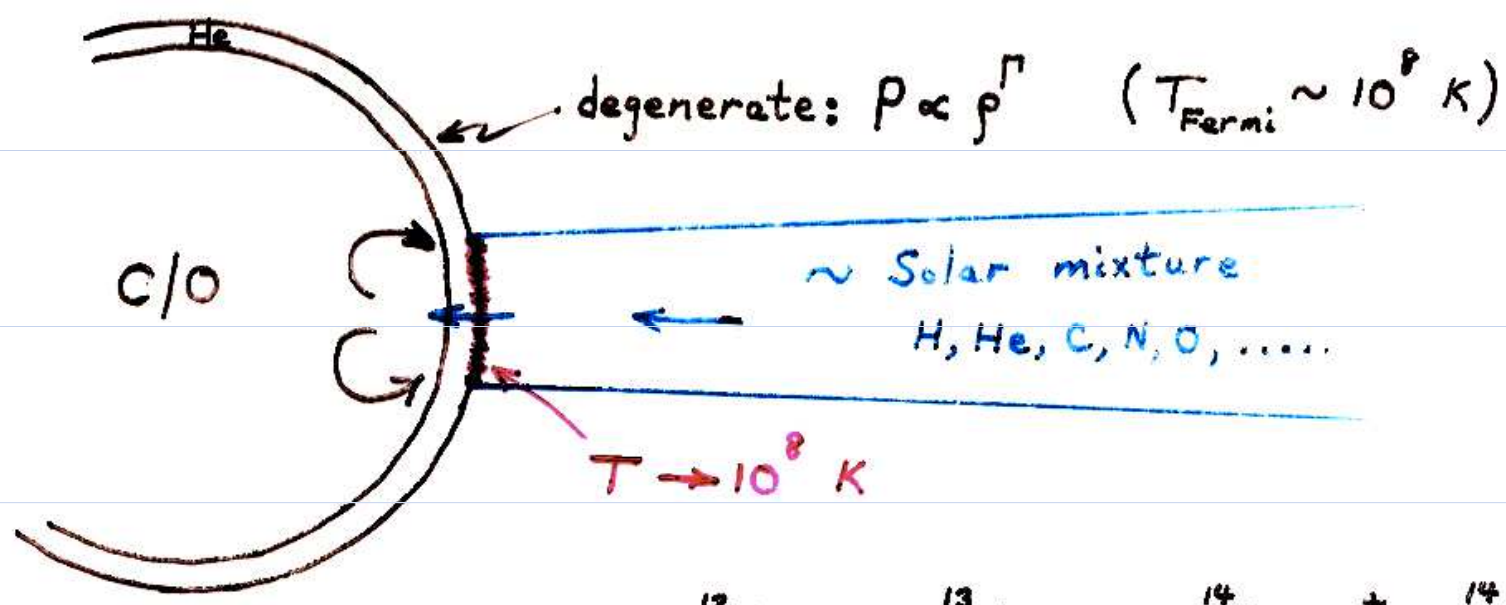 He
degenerate: P ∝ ρ^Γ (T_Fermi ~ 10^8 K)
C/O
~ Solar mixture
H, He, C, N, O, .....
T → 10^8 K
12 13 14 + 14